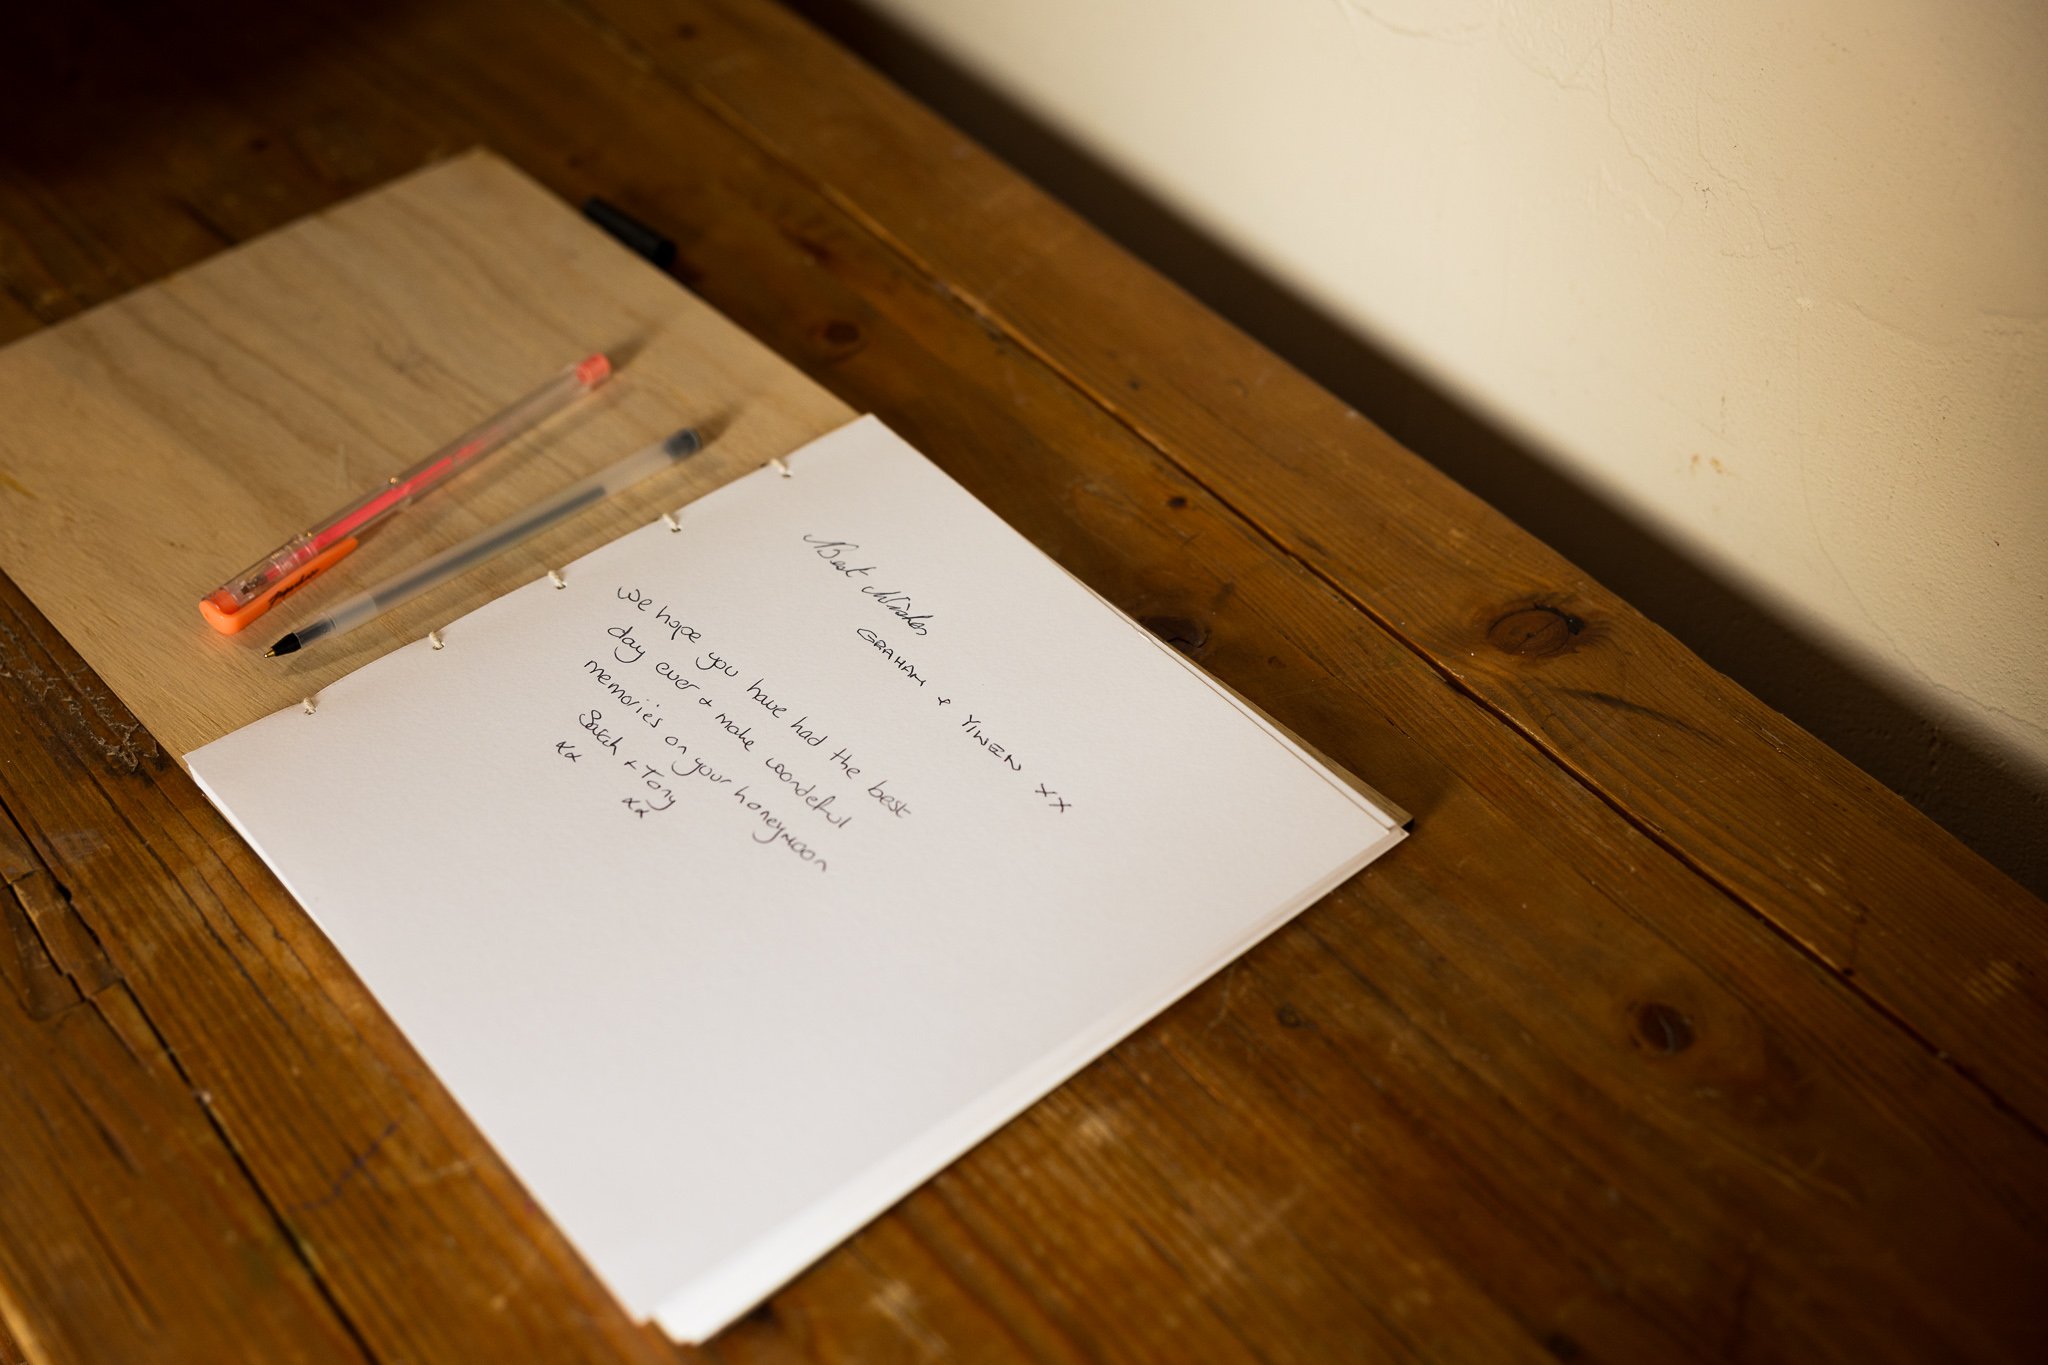 Best Wishes
GRAHAM + YIWEN XX
We hope you have had the best
day ever + make wonderful
memories on your honeymoon
Sarah + Tony
xx xx